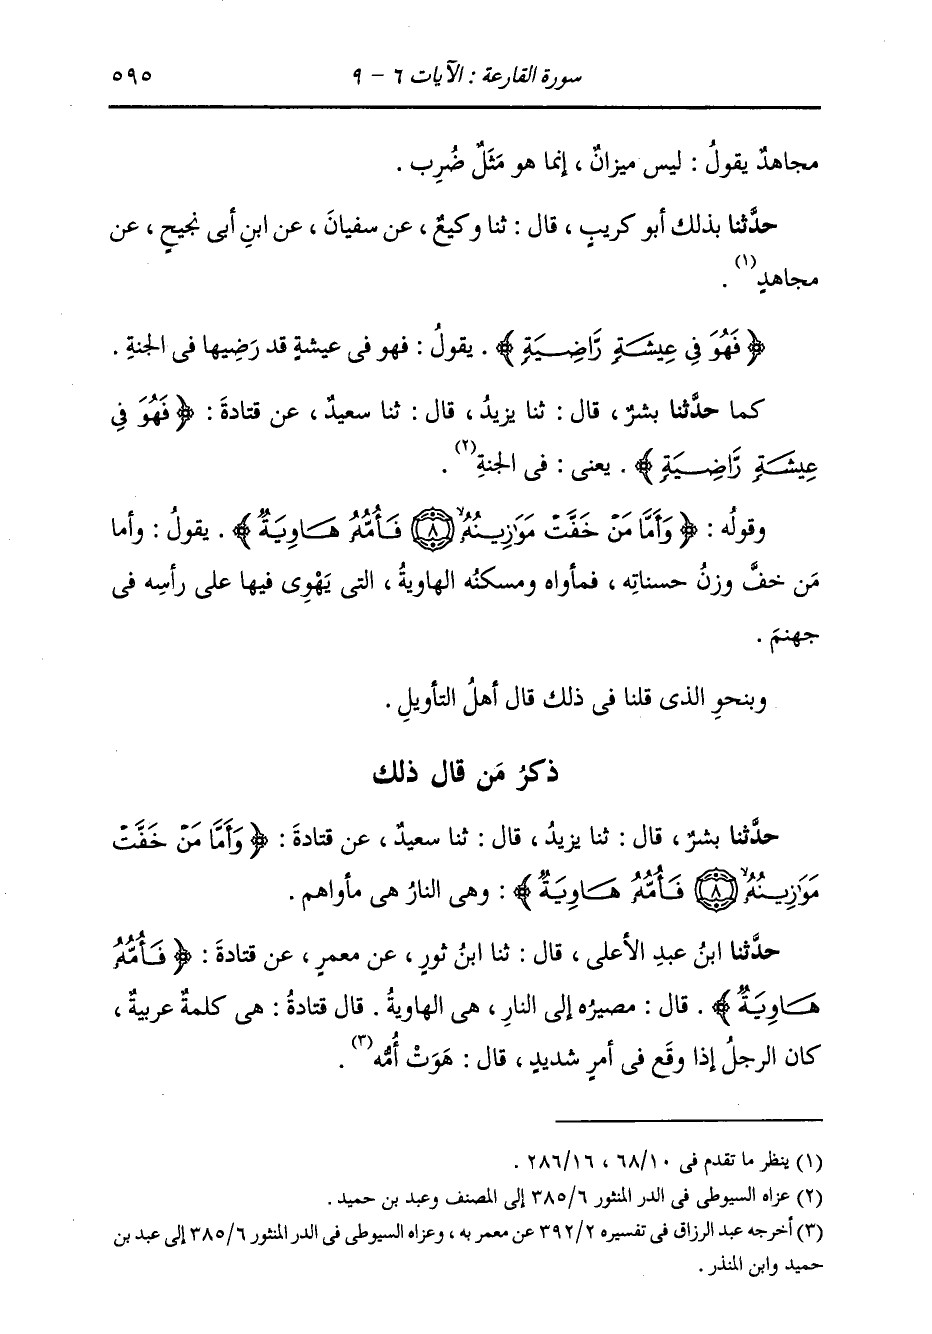 سورة القارعة : الآيات ٦ - ٩ ٥٩٥
مجاهدٌ يقولُ : ليس ميزانٌ ، إنما هو مَثَلٌ ضُرِب .
حدَّثنا بذلك أبو كريبٍ ، قال : ثنا وكيعٌ ، عن سفيانَ ، عن ابنِ أبى نجيحٍ ، عن
مجاهدٍ(١) .
﴿ فَهُوَ فِي عِيشَةٍ رَّاضِيَةٍ ﴾ . يقولُ : فهو فى عيشةٍ قد رَضِيها فى الجنةِ .
كما حدَّثنا بشرٌ ، قال : ثنا يزيدُ ، قال : ثنا سعيدٌ ، عن قتادةَ : ﴿ فَهُوَ فِي
عِيشَةٍ رَّاضِيَةٍ ﴾ . يعنى : فى الجنةِ(٢) .
وقولُه : ﴿ وَأَمَّا مَنْ خَفَّتْ مَوَٰزِينُهُۥ ۙ ٨ فَأُمُّهُۥ هَاوِيَةٌ ﴾ . يقولُ : وأما
مَن خفَّ وزنُ حسناتِه ، فمأواه ومسكنُه الهاويةُ ، التى يَهْوِى فيها على رأسِه فى
جهنمَ .
وبنحوِ الذى قلنا فى ذلك قال أهلُ التأويلِ .
ذكرُ مَن قال ذلك
حدَّثنا بشرٌ ، قال : ثنا يزيدُ ، قال : ثنا سعيدٌ ، عن قتادةَ : ﴿ وَأَمَّا مَنْ خَفَّتْ
مَوَٰزِينُهُۥ ۙ ٨ فَأُمُّهُۥ هَاوِيَةٌ ﴾ : وهى النارُ هى مأواهم .
حدَّثنا ابنُ عبدِ الأعلى ، قال : ثنا ابنُ ثورٍ ، عن معمرٍ ، عن قتادةَ : ﴿ فَأُمُّهُۥ
هَاوِيَةٌ ﴾ . قال : مصيرُه إلى النارِ ، هى الهاويةُ . قال قتادةُ : هى كلمةٌ عربيةٌ ،
كان الرجلُ إذا وقَع فى أمرٍ شديدٍ ، قال : هَوَتْ أُمُّه(٣) .
(١) ينظر ما تقدم فى ٦٨/١٠ ، ٢٨٦/١٦ .
(٢) عزاه السيوطى فى الدر المنثور ٣٨٥/٦ إلى المصنف وعبد بن حميد .
(٣) أخرجه عبد الرزاق فى تفسيره ٣٩٢/٢ عن معمر به ، وعزاه السيوطى فى الدر المنثور ٣٨٥/٦ إلى عبد بن
حميد وابن المنذر .